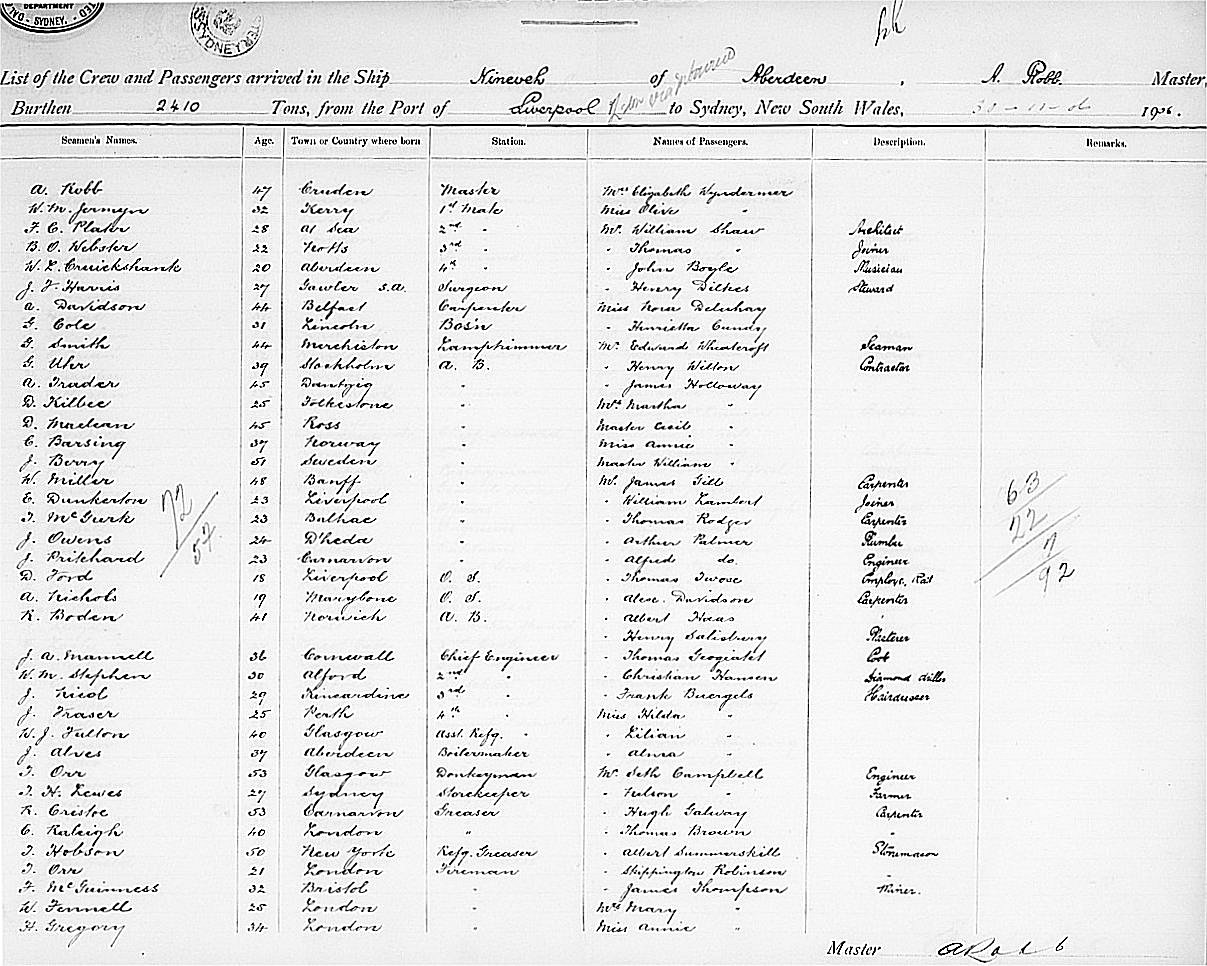 DEPARTMENT
SYDNEY.
SYDNEY
List of the Crew and Passengers arrived in the Ship Nineveh of Aberdeen, A. Robb. Master,
Burthen 2410 Tons, from the Port of Liverpool to Sydney, New South Wales, 1906.
Seamen's Names. Age. Town or Country where born Station. Names of Passengers. Description. Remarks.
A. Robb 47 Cruden Master Mrs Elizabeth Wyndermer
W. M. Jermyn 32 Kerry 1st Mate Miss Olive "
F. C. Plater 28 At Sea 2nd " Mr. William Shaw Architect
B. O. Webster 22 Notts 3rd " " Thomas " Joiner
W. L. Cruickshank 20 Aberdeen 4th " " John Boyle Musician
J. F. Harris 27 Gawler S.A. Surgeon " Henry Dilkes Steward
A. Davidson 44 Belfast Carpenter Miss Nora Deluhay
G. Cole 31 Lincoln Bos'n " Henrietta Cundy
G. Smith 44 Merchiston Lamptrimmer Mr. Edward Wheatcroft Seaman
G. Uhr 39 Stockholm A. B. " Henry Wilton Contractor
A. Trader 45 Dantzig " " James Holloway
D. Kilbee 25 Folkestone " Mrs Martha "
D. Maclean 45 Ross " Master Cecil "
C. Barsing 37 Norway " Miss Annie "
J. Berry 51 Sweden " Master William "
W. Miller 48 Banff " Mr. James Gill Carpenter
E. Dunkerton 23 Liverpool " " William Lambert Joiner
T. McGurk 23 " " Thomas Rodger Carpenter
J. Owens 24 " " Arthur Palmer Plumber
J. Pritchard 23 Carnarvon " " Alfred do. Engineer
D. Ford 18 Liverpool O. S. " Thomas Twose Employe. Rail
A. Nichols 19 Marybone O. S. " Alex. Davidson Carpenter
R. Boden 41 Norwich A. B. " Albert Haas "
" Henry Salisbury Plasterer
J. A. Mannell 36 Cornwall Chief Engineer " Thomas Cook
W. M. Stephen 30 Alford 2nd " " Christian Hansen Diamond driller
J. Nicol 29 Kincardine 3rd " " Frank Buergels Hairdresser
J. Fraser 25 Perth 4th " Miss Hilda "
W. J. Fulton 40 Glasgow Asst. Refg. " " Lilian "
J. Alves 37 Aberdeen Boilermaker " Alma "
T. Orr 53 Glasgow Donkeyman Mr. Seth Campbell Engineer
T. H. Lewes 27 Sydney Storekeeper " Nelson " Farmer
R. Cristoe 53 Carnarvon Greaser " Hugh Galway Carpenter
C. Raleigh 40 London " " Thomas Brown "
T. Hobson 50 New York Refg. Greaser " Albert Summerskill Stonemason
T. Orr 21 London Fireman " Skippington Robinson "
F. McGuinness 32 Bristol " " James Thompson Miner.
W. Fennell 25 London " Mrs Mary "
H. Gregory 34 London " Miss Annie "
72
57
63
22
7
92
Master A Robb